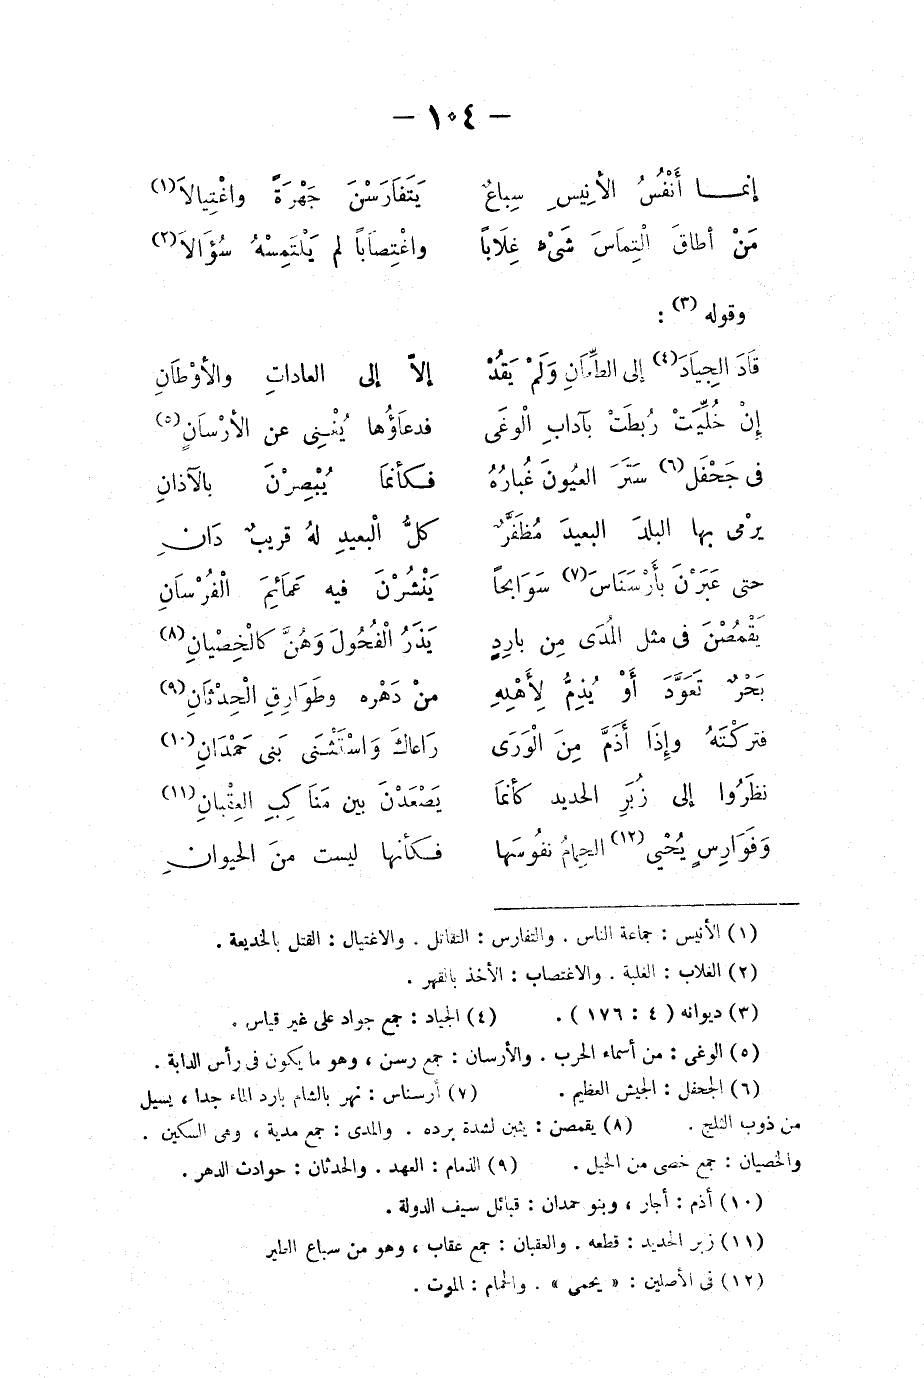 — ١٠٤ —
إنمــا أَنْفُسُ الأنِيسِ سِباعٌ يَتَفَارَسْنَ جَهْرَةً واغْتِيالاَ(١)
مَنْ أطاقَ الْتِماسَ شَىْءٍ غِلَاباً واغْتِصَاباً لم يَلْتَمِسْهُ سُؤَالاَ(٢)
وقوله (٣) :
قَادَ الجِيَادَ(٤) إلى الطِّعانِ وَلَمْ يَقُدْ إلاّ إلى العاداتِ والأوْطَانِ
إنْ خُلِّيَتْ رُبطَتْ بآدابِ الْوغَى فدعاَؤُها يُغْـنِى عن الأرْسَانِ(٥)
فى جَحْفَلٍ(٦) سَتَرَ العيُونَ غُبارُهُ فـكأنمَا يُبْصِرْنَ بالآذانِ
يرْمى بها البلدَ البعيدَ مُظَفَّرٌ كلُّ الْبعيدِ لهُ قريبٌ دَانِ
حتى عَبَرْنَ بأَرْسَنَاسَ(٧) سَوَابحاً يَنْشُرْنَ فيه عَمَائِمَ الْفُرْسَانِ
يَقْمُصْنَ فى مثل المُدَى مِن باردٍ يَذَرُ الْفُحُولَ وَهُنَّ كالْخِصْيانِ(٨)
بَحْرٌ تَعَوَّدَ أَوْ يُذِمُّ لِأَهْلِهِ منْ دَهْره وطَوَارِقِ الْحِدْثَانِ(٩)
فتركْتَهُ وإذَا أَذَمَّ مِنَ الْوَرَى رَاعاكَ وَاسْتَثْـنَى بَنى حَمْدَانِ(١٠)
نظَرُوا إلى زُبَرِ الحديد كأنمَا يَصْعَدْنَ بين مَنَاكِبِ العِقْبانِ(١١)
وَفَوَارِسٍ يُحْيِى(١٢) الحِمامُ نفوسَها فـكأنها ليست منَ الحيوانِ
(١) الأنيس : جماعة الناس . والتفارس : التقاتل . والاغتيال : القتل بالخديعة .
(٢) الغلاب : الغلبة . والاغتصاب : الأخذ بالقهر .
(٣) ديوانه ( ٤ : ١٧٦ ) . (٤) الجياد : جمع جواد على غير قياس .
(٥) الوغى : من أسماء الحرب . والأرسان : جمع رسن ، وهو ما يكون فى رأس الدابة .
(٦) الجحفل : الجيش العظيم . (٧) أرسناس : نهر بالشام بارد الماء جدا ، يسيل
من ذوب الثلج . (٨) يقمصن : يثبن لشدة برده . والمدى : جمع مدية ، وهى السكين .
والخصيان : جمع خصى من الخيل . (٩) الذمام : العهد . والحدثان : حوادث الدهر .
(١٠) أذم : أجار ، وبنو حمدان : قبائل سيف الدولة .
(١١) زبر الحديد : قطعه . والعقبان : جمع عقاب ، وهو من سباع الطير
(١٢) فى الأصلين : « يحمى » . والحمام : الموت .